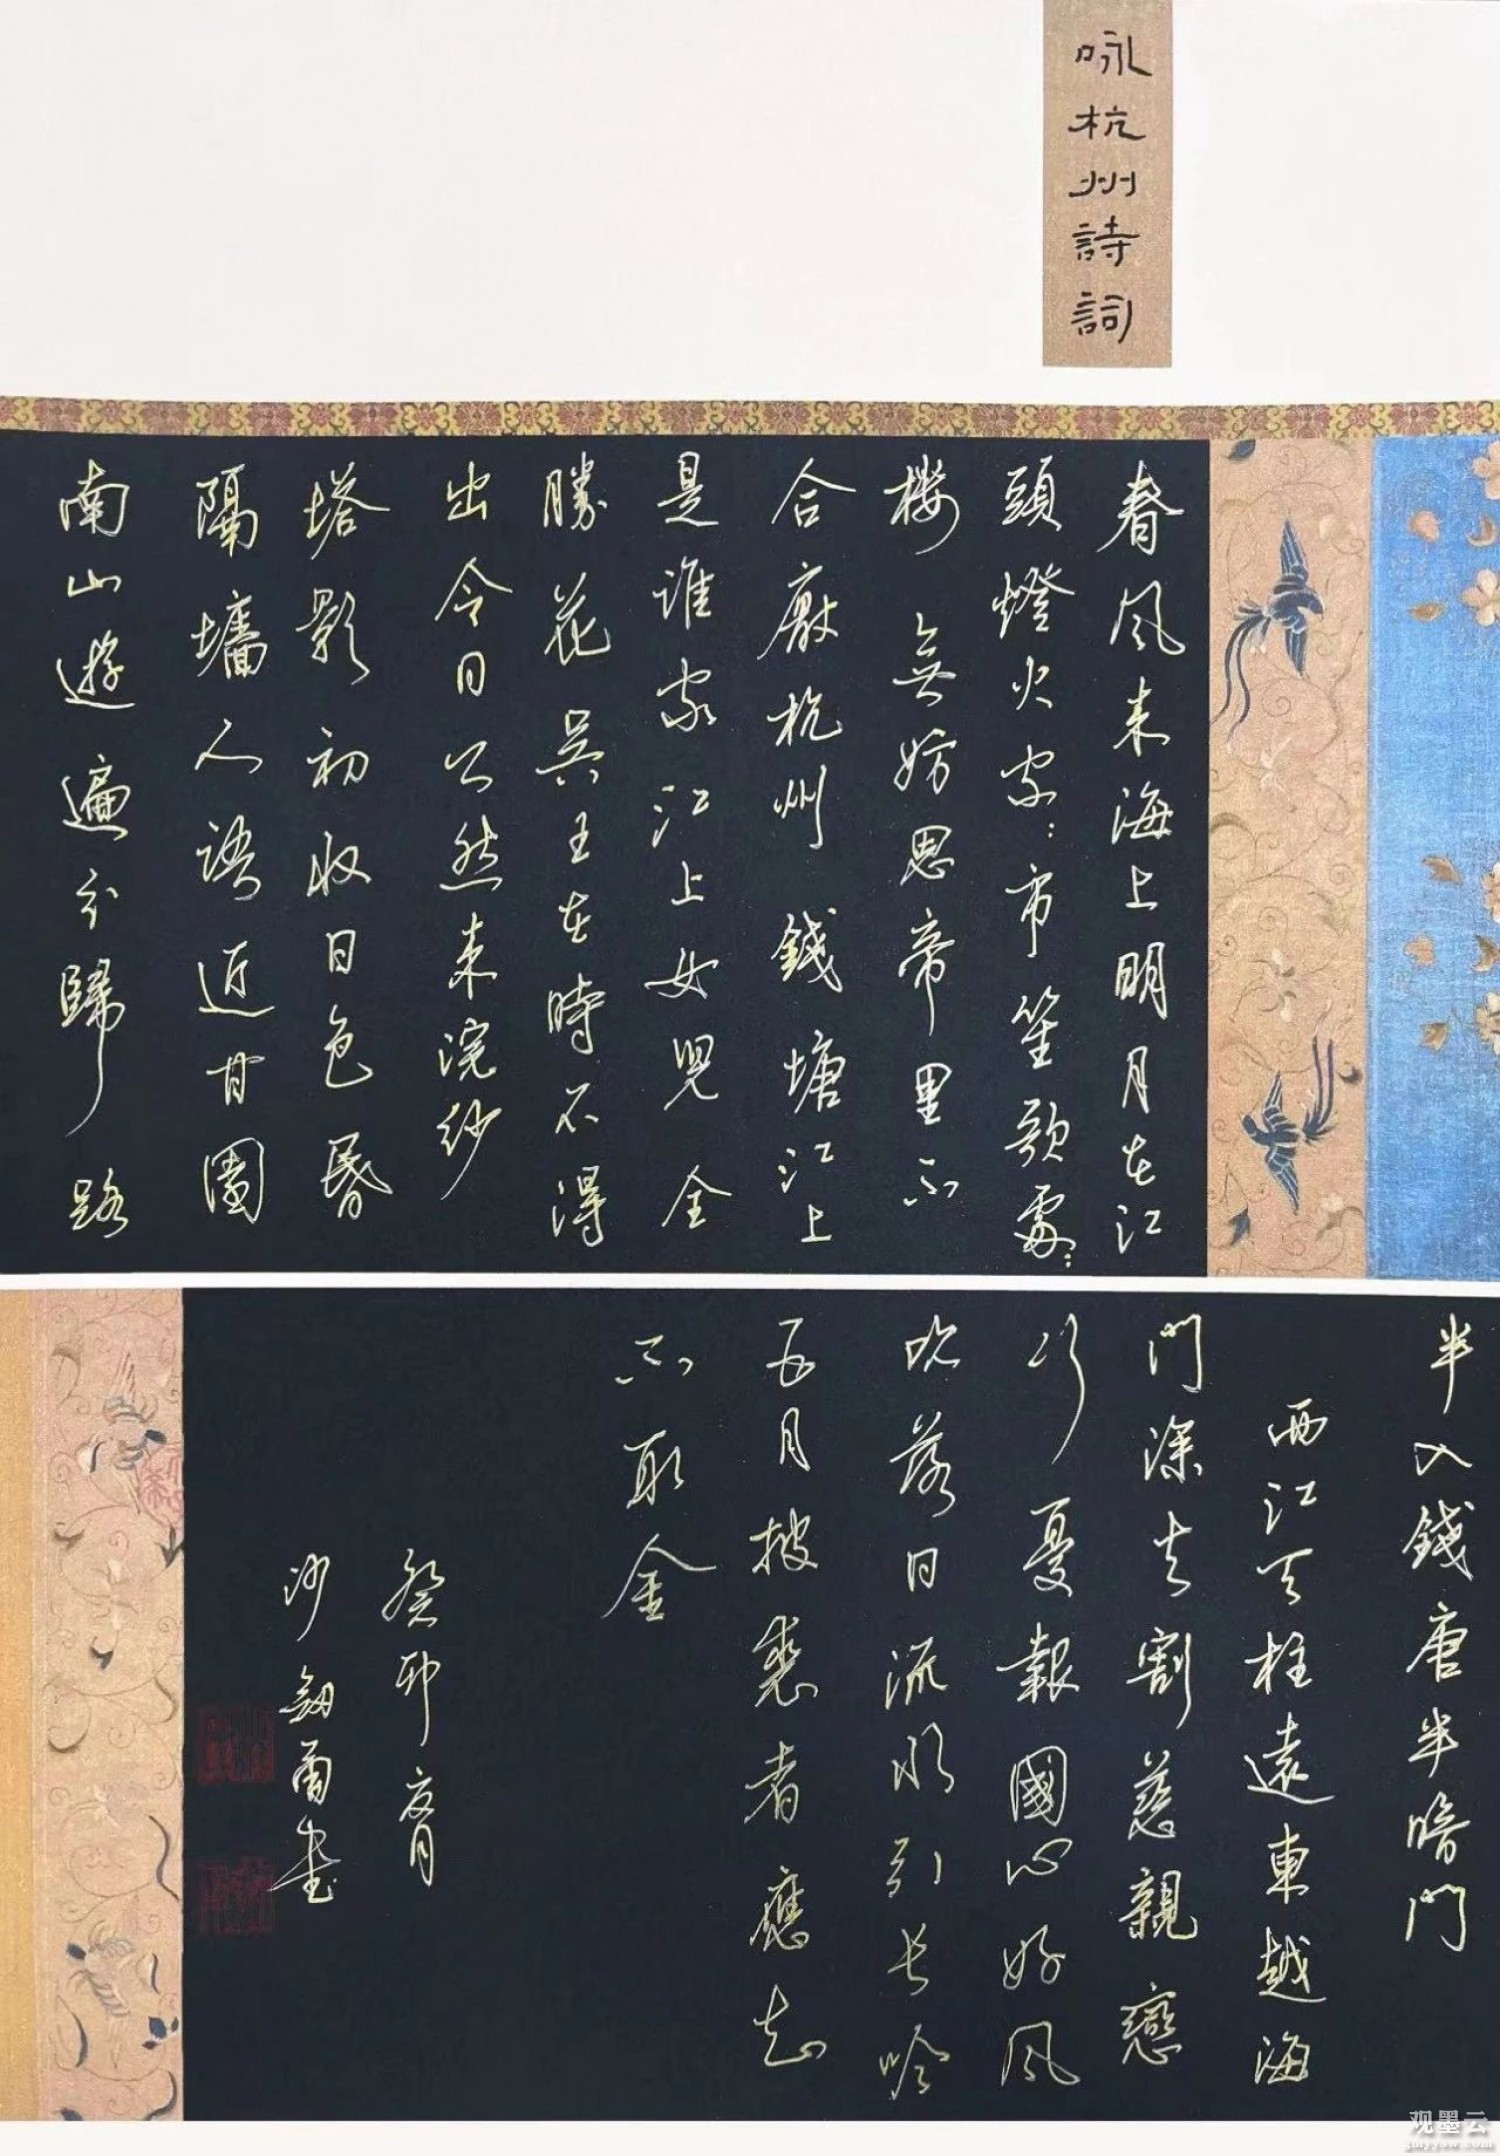 咏杭州詩詞
春风来海上明月在江
頭燈火家〻市笙歌處〻
樓無妨思帝里不
合厭杭州錢塘江上
是誰家江上女兒全
勝花吳王在時不得
出今日公然来浣紗
塔影初收日色昏
隔墻人語近甘園
南山遊遍分歸路
半入錢唐半暗門
西江天柱遠東越海
門深去割慈親戀
行憂報國心好风
吹落日流水引長吟
五月披裘者應知
不取金
癸卯夏月
沙書
观墨云